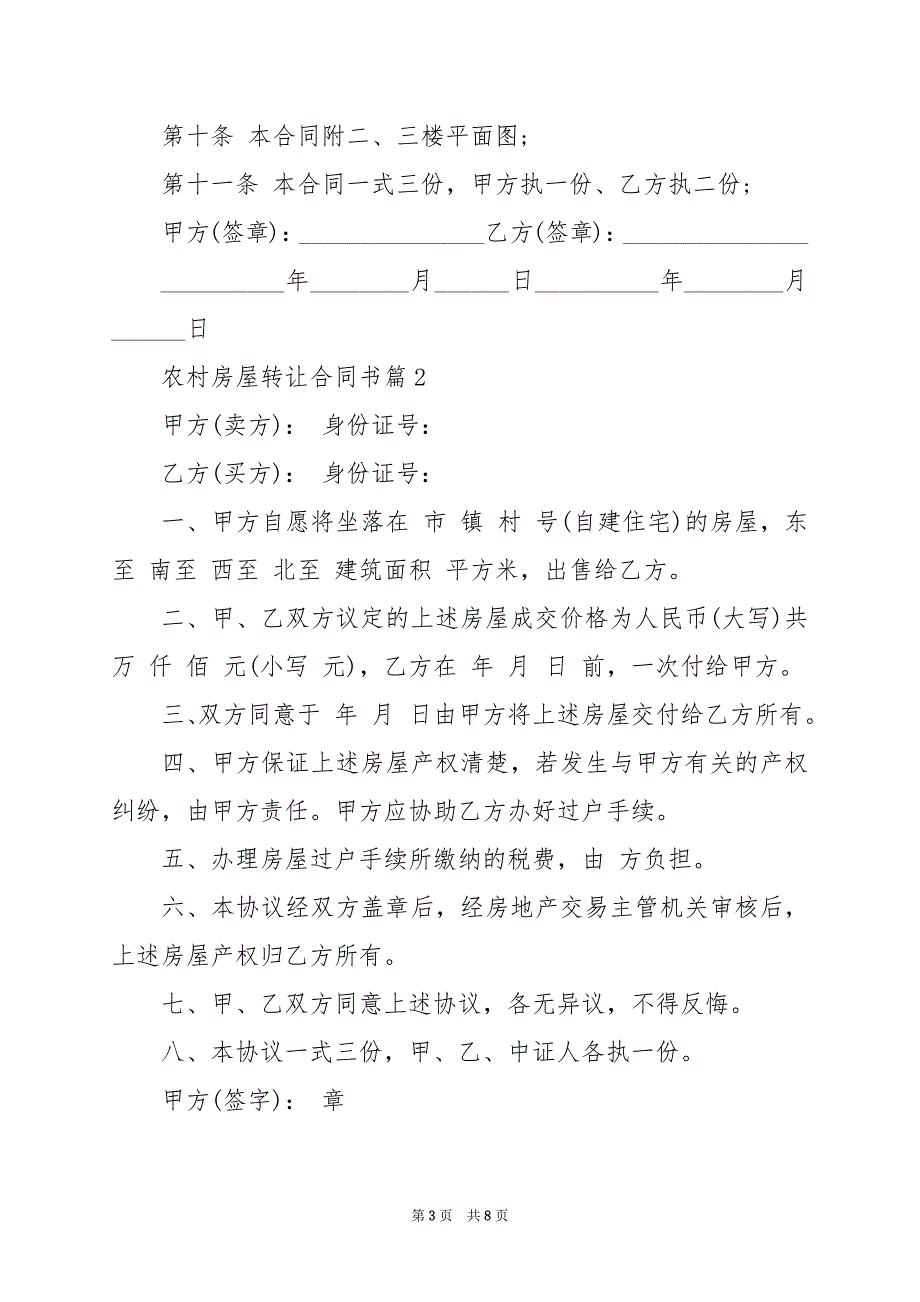 第十条 本合同附二、三楼平面图;
第十一条 本合同一式三份，甲方执一份、乙方执二份;
甲方(签章)：_______________乙方(签章)：_______________
__________年________月______日__________年________月
______日
农村房屋转让合同书篇2
甲方(卖方)： 身份证号：
乙方(买方)： 身份证号：
一、甲方自愿将坐落在 市 镇 村 号(自建住宅)的房屋，东
至 南至 西至 北至 建筑面积 平方米，出售给乙方。
二、甲、乙双方议定的上述房屋成交价格为人民币(大写)共
万 仟 佰 元(小写 元)，乙方在 年 月 日 前，一次付给甲方。
三、双方同意于 年 月 日由甲方将上述房屋交付给乙方所有。
四、甲方保证上述房屋产权清楚，若发生与甲方有关的产权
纠纷，由甲方责任。甲方应协助乙方办好过户手续。
五、办理房屋过户手续所缴纳的税费，由 方负担。
六、本协议经双方盖章后，经房地产交易主管机关审核后，
上述房屋产权归乙方所有。
七、甲、乙双方同意上述协议，各无异议，不得反悔。
八、本协议一式三份，甲、乙、中证人各执一份。
甲方(签字)： 章
第 3 页 共 8 页